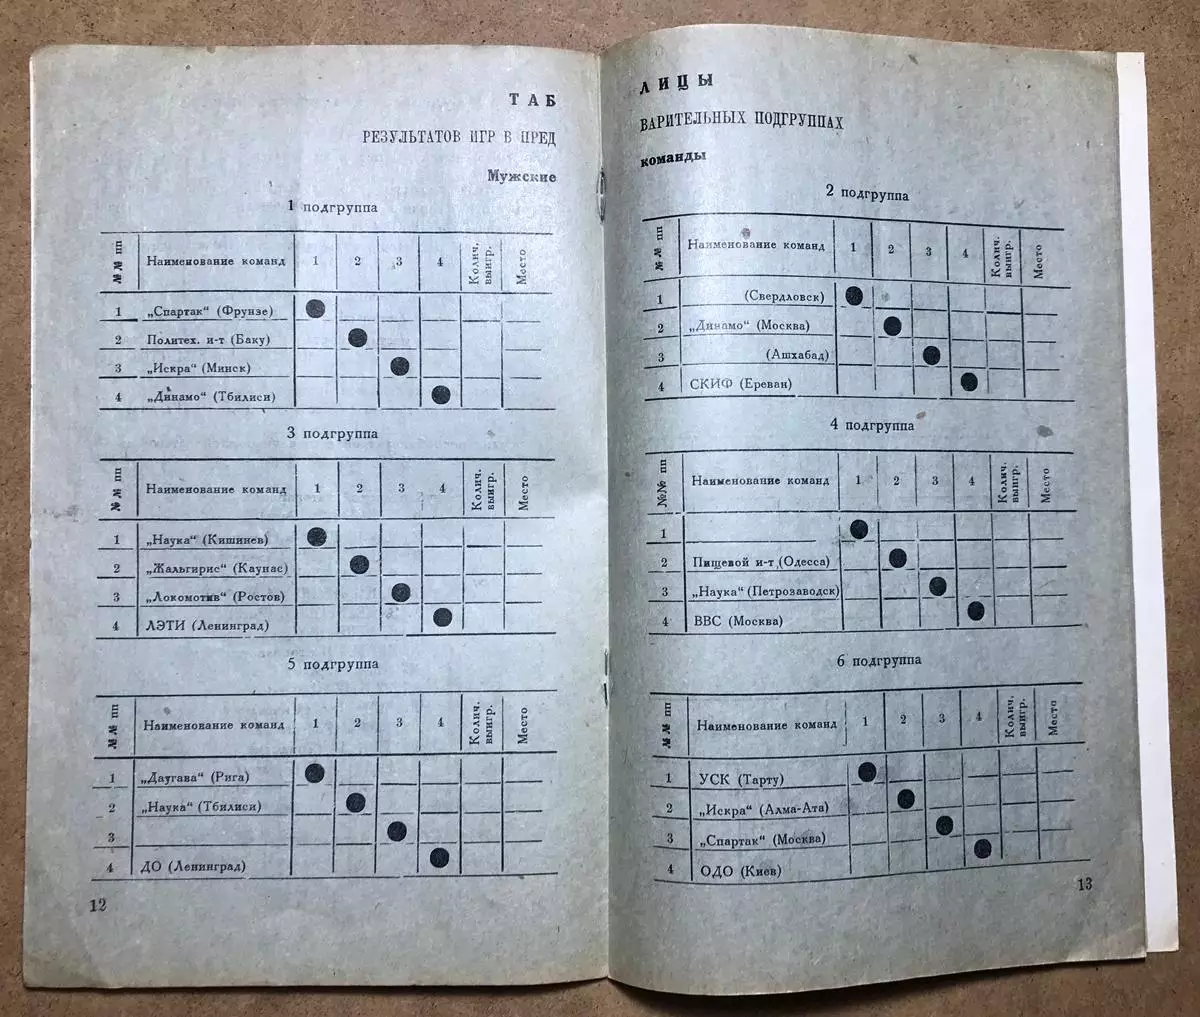 ТАБ
РЕЗУЛЬТАТОВ ИГР В ПРЕД
Мужские
1 подгруппа
№№ пп Наименование команд 1 2 3 4 Колич. выигр. Место
1 „Спартак“ (Фрунзе)
2 Политех. и-т (Баку)
3 „Искра“ (Минск)
4 „Динамо“ (Тбилиси)
3 подгруппа
№№ пп Наименование команд 1 2 3 4 Колич. выигр. Место
1 „Наука“ (Кишинев)
2 „Жальгирис“ (Каунас)
3 „Локомотив“ (Ростов)
4 ЛЭТИ (Ленинград)
5 подгруппа
№№ пп Наименование команд 1 2 3 4 Колич. выигр. Место
1 „Даугава“ (Рига)
2 „Наука“ (Тбилиси)
3
4 ДО (Ленинград)
12
ЛИЦЫ
ВАРИТЕЛЬНЫХ ПОДГРУППАХ
команды
2 подгруппа
№№ пп Наименование команд 1 2 3 4 Колич. выигр. Место
1 (Свердловск)
2 „Динамо“ (Москва)
3 (Ашхабад)
4 СКИФ (Ереван)
4 подгруппа
№№ пп Наименование команд 1 2 3 4 Колич. выигр. Место
1
2 Пищевой и-т (Одесса)
3 „Наука“ (Петрозаводск)
4 ВВС (Москва)
6 подгруппа
№№ пп Наименование команд 1 2 3 4 Колич. выигр. Место
1 УСК (Тарту)
2 „Искра“ (Алма-Ата)
3 „Спартак“ (Москва)
4 ОДО (Киев)
13